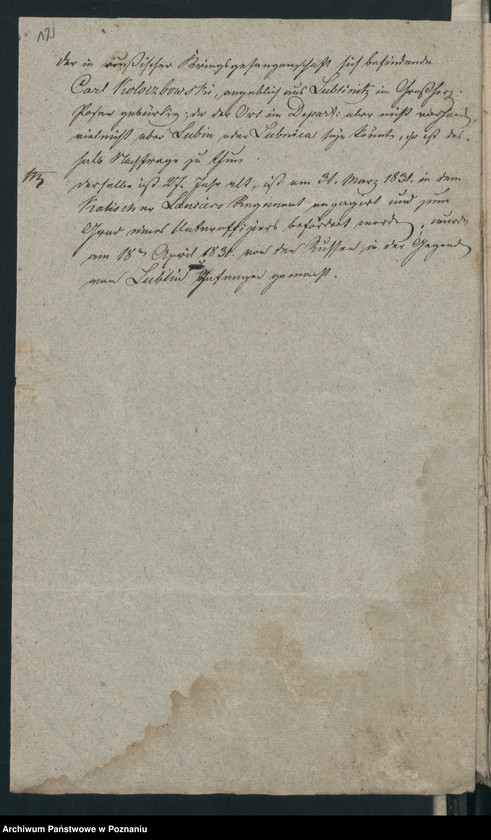 der in russischer Kriegsgefangenschaft sich befindende
Carl Kolserbowski, angeblich aus Lublinitz im Großherz.
Posen gebürtig; da der Ort im Departt: aber nicht vorhanden,
vielleicht aber Lubin oder Lubnica seyn könnte, so ist des-
halb Nachfrage zu thun.
derselbe ist 27. Jahr alt, ist am 31. März 1831. in dem
Kalischer Lanciers Regiment engagirt und zum
Grad eines Unteroffiziers befördert worden; wurde
am 18n April 1831. von den Russen in der Gegend
von Lublin Gefangen gemacht.
Archiwum Państwowe w Poznaniu